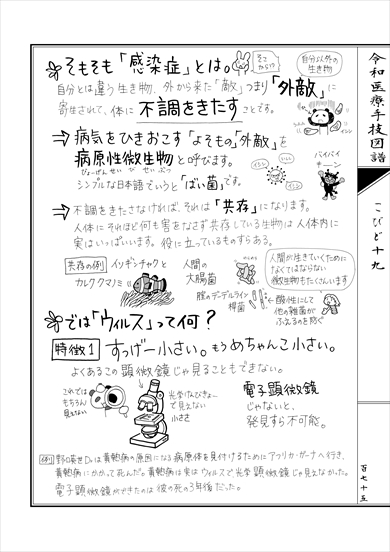 そもそも「感染症」とは。
そこからか?
自分以外の
生き物
自分とは違う生き物、外から来た「敵」つまり「外敵」に
寄生されて、体に 不調をきたす ことです。
⇒ 病気をひきおこす「よそもの」「外敵」を
病原性微生物 と呼びます。
びょうげんせい びせいぶつ
シンプルな日本語でいうと「ばい菌」です。
イシシ
イシシ
バイバイ
⇒ 不調をきたさなければ、それは「共存」になります。
人体にそれほど何も害をなさず共存している生物は人体内に
実はいっぱいいます。役に立っているものすらある。
共存の例
イソギンチャクと
カクレクマノミ
人間の
大腸菌
人間が生きていくために
なくてはならない
微生物もたくさんいます
腟のデーデルライン
桿菌
← 酸性にして
他の雑菌が
ふえるのを防ぐ
では「ウィルス」って何?
特徴1 すっげー小さい。もうめちゃんこ小さい。
よくあるこの顕微鏡じゃ見ることもできない。
これでは
もちろん
見えない
光学けんびきょー
で見えない
小ささ
電子顕微鏡
じゃないと、
発見すら不可能。
例 野口英世Dr.は黄熱病の原因になる病原体を見付けるためにアフリカ・ガーナへ行き、
黄熱病にかかって死んだ。黄熱病は実はウイルスで、光学顕微鏡じゃ見えなかった。
電子顕微鏡ができたのは彼の死の3年後だった。
令和医療手技図譜
こびと十九
百七十五